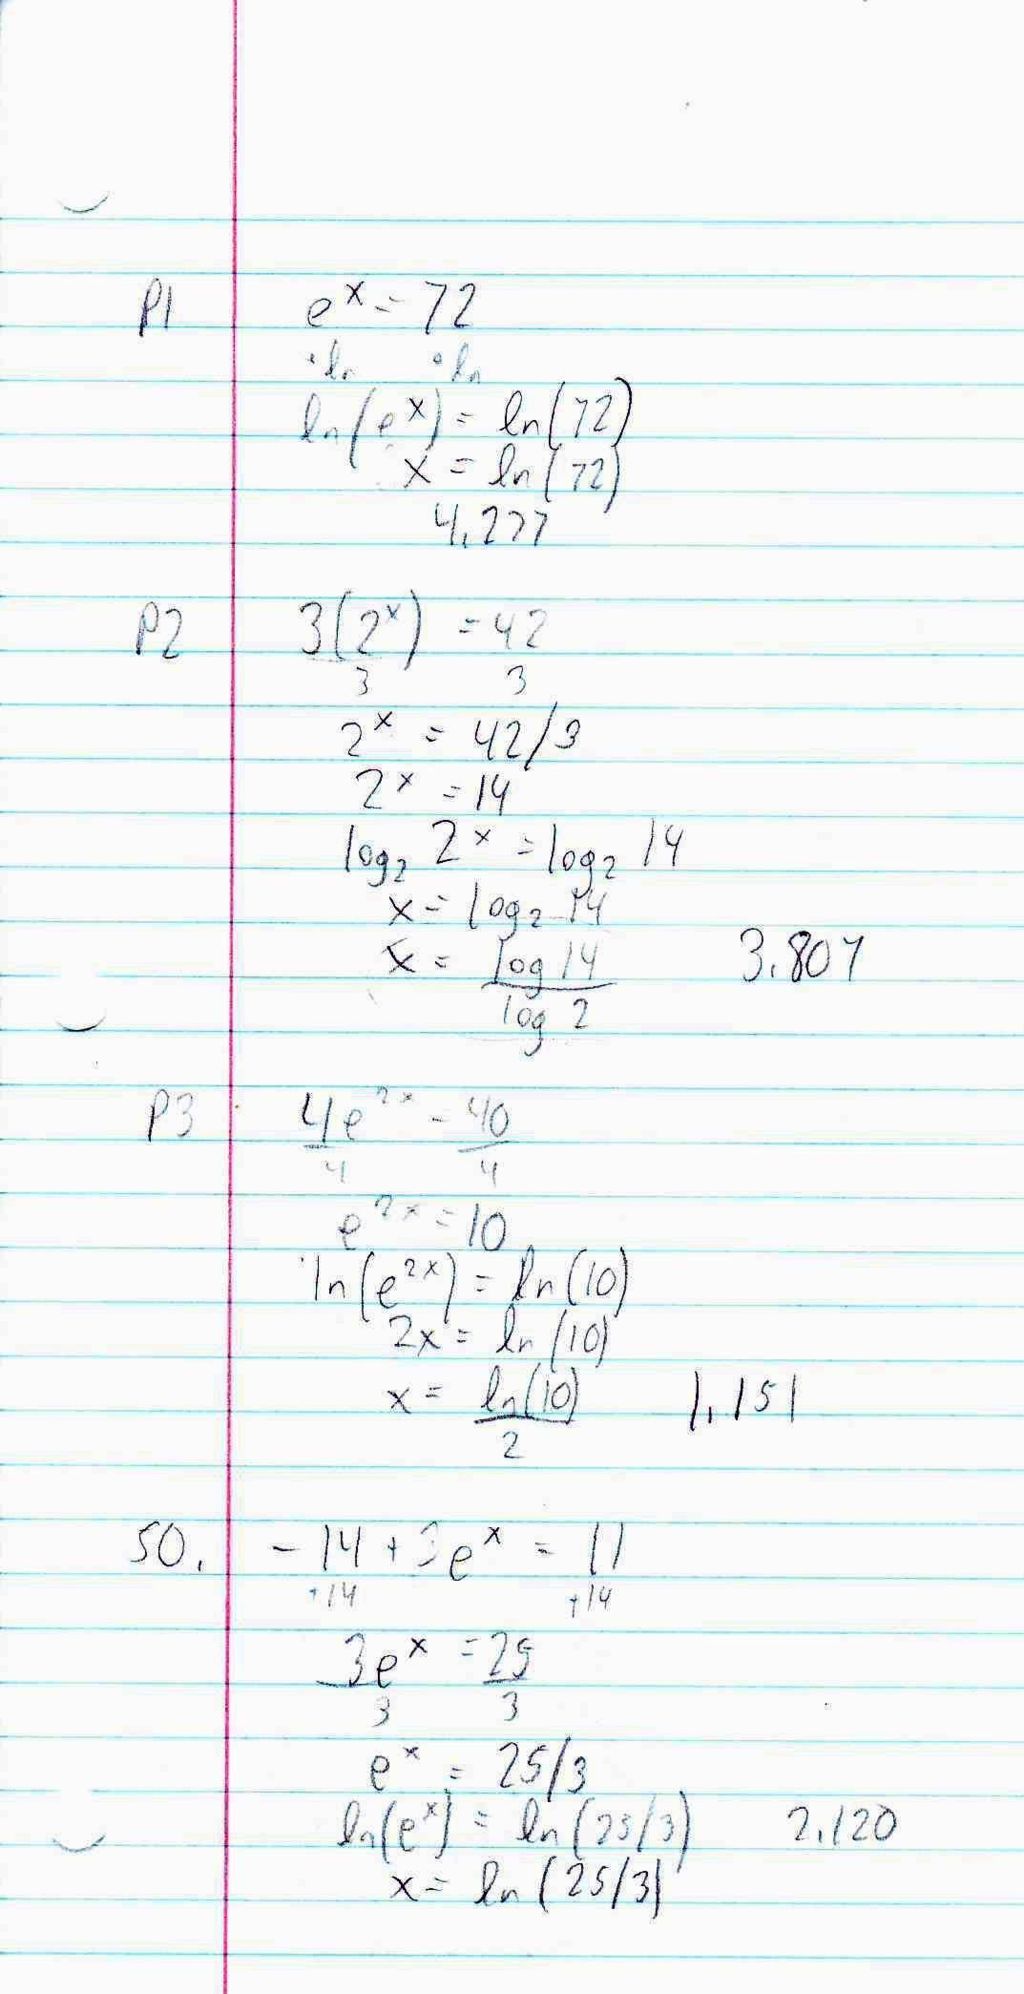 P1 e^x = 72
·ln ·ln
ln(e^x) = ln(72)
x = ln(72)
4.277
P2 3(2^x) = 42
3 3
2^x = 42/3
2^x = 14
log₂ 2^x = log₂ 14
x = log₂ 14
x = log 14 3.807
log 2
P3 4e^2x = 40
4 4
e^2x = 10
ln(e^2x) = ln(10)
2x = ln(10)
x = ln(10) 1.151
2
50. -14 + 3e^x = 11
+14 +14
3e^x = 25
3 3
e^x = 25/3
ln(e^x) = ln(25/3) 2.120
x = ln(25/3)